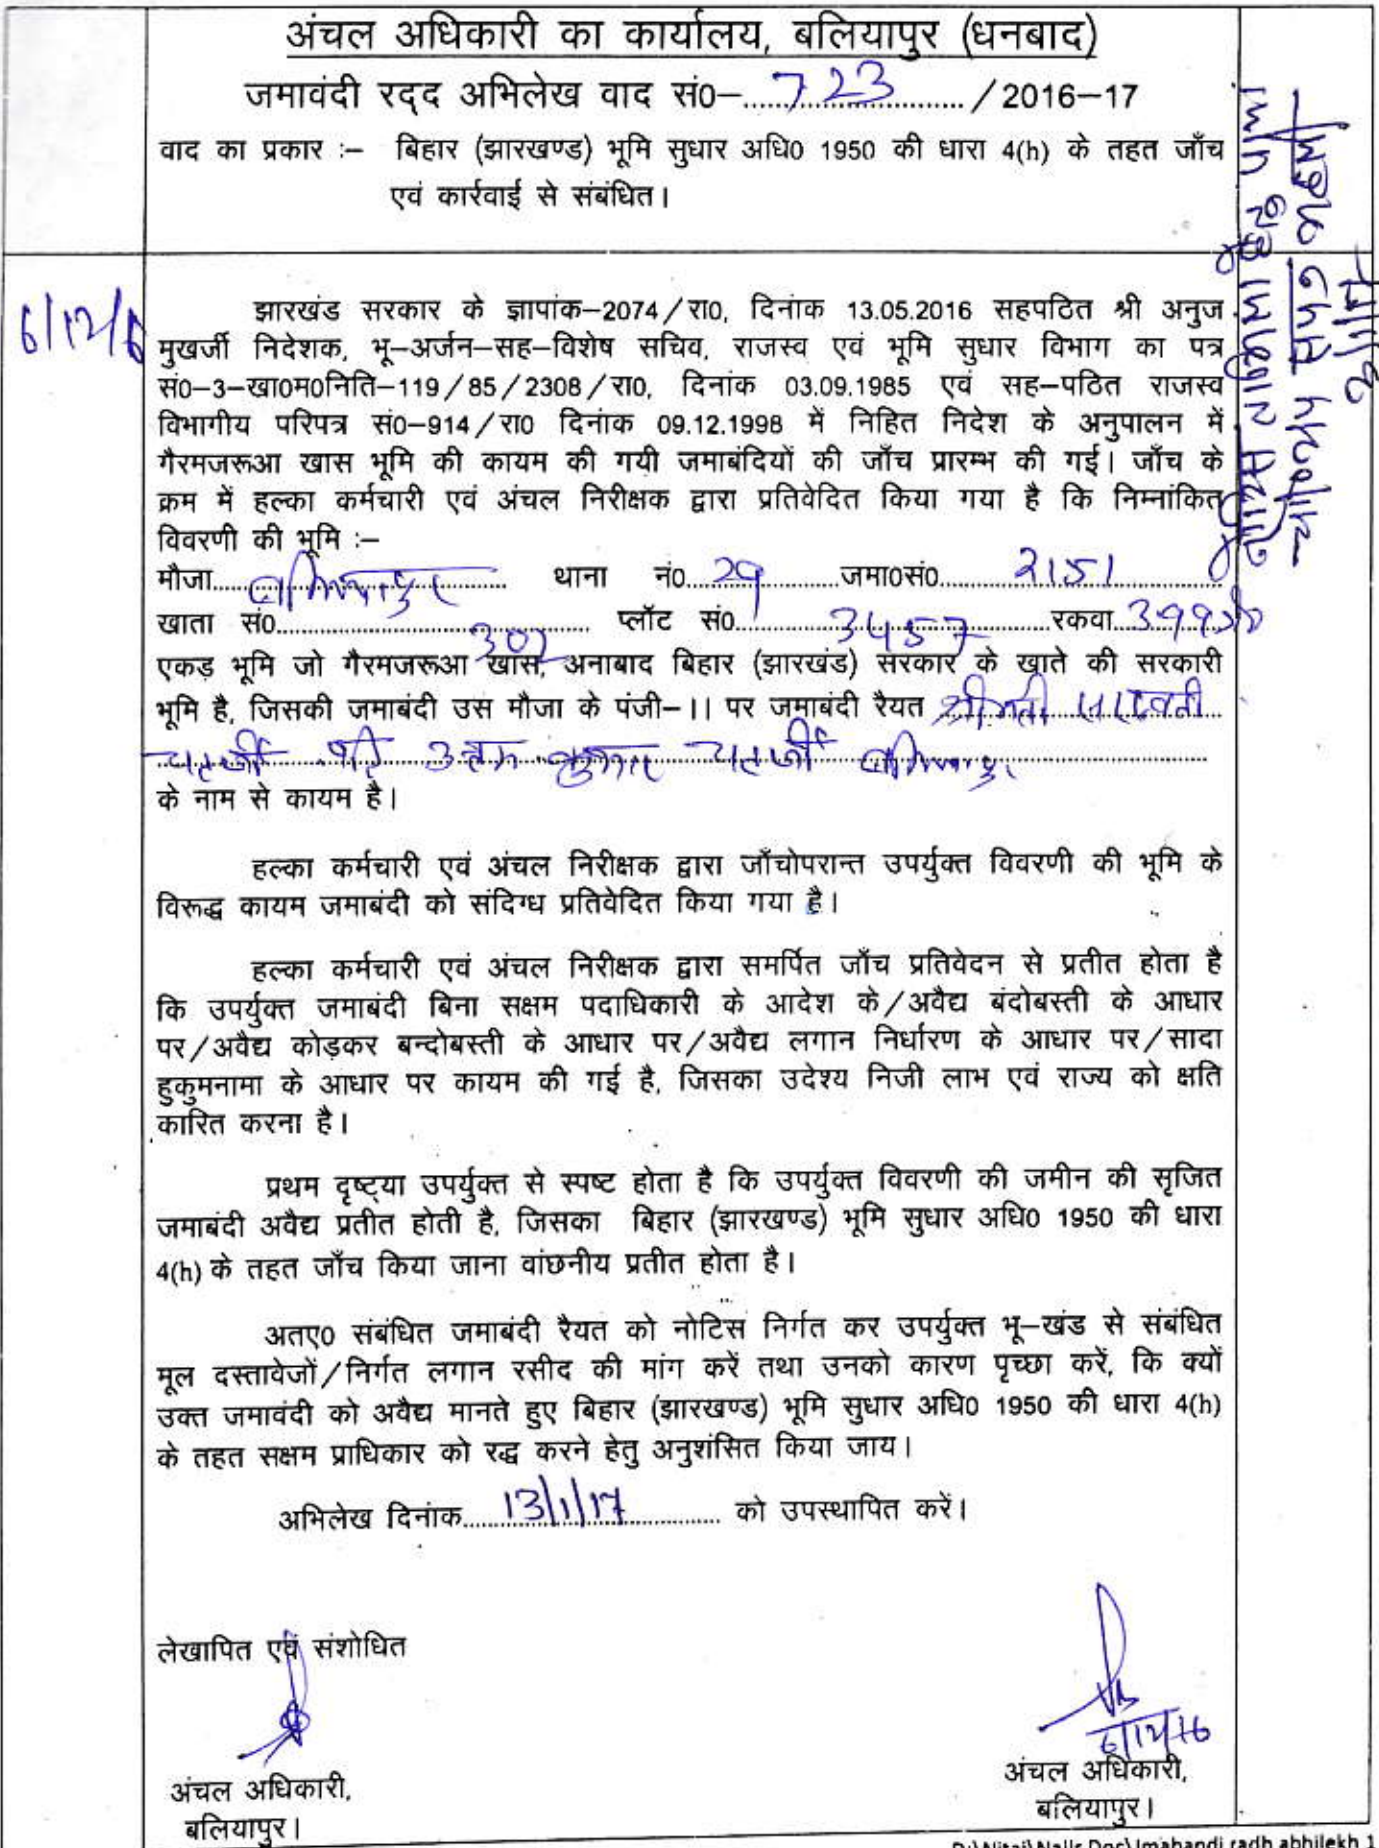 अंचल अधिकारी का कार्यालय, बलियापुर (धनबाद)
जमावंदी रद्द अभिलेख वाद सं0–....723....../2016–17
वाद का प्रकार :– बिहार (झारखण्ड) भूमि सुधार अधि0 1950 की धारा 4(h) के तहत जाँच
एवं कार्रवाई से संबंधित।
6/12/16
झारखंड सरकार के ज्ञापांक–2074/रा0, दिनांक 13.05.2016 सहपठित श्री अनुज
मुखर्जी निदेशक, भू–अर्जन–सह–विशेष सचिव, राजस्व एवं भूमि सुधार विभाग का पत्र
सं0–3–खा0म0निति–119/85/2308/रा0, दिनांक 03.09.1985 एवं सह–पठित राजस्व
विभागीय परिपत्र सं0–914/रा0 दिनांक 09.12.1998 में निहित निदेश के अनुपालन में
गैरमजरूआ खास भूमि की कायम की गयी जमाबंदियों की जाँच प्रारम्भ की गई। जाँच के
क्रम में हल्का कर्मचारी एवं अंचल निरीक्षक द्वारा प्रतिवेदित किया गया है कि निम्नांकित
विवरणी की भूमि :–
मौजा....बलियापुर.... थाना नं0..29....जमा0सं0....2151....
खाता सं0....302.... प्लॉट सं0....3457....रकवा..
एकड़ भूमि जो गैरमजरूआ खास, अनाबाद बिहार (झारखंड) सरकार के खाते की सरकारी
भूमि है, जिसकी जमाबंदी उस मौजा के पंजी–।। पर जमाबंदी रैयत श्रीमती
चटर्जी उत्तम कुमार चटर्जी बलियापुर
के नाम से कायम है।
हल्का कर्मचारी एवं अंचल निरीक्षक द्वारा जाँचोपरान्त उपर्युक्त विवरणी की भूमि के
विरूद्ध कायम जमाबंदी को संदिग्ध प्रतिवेदित किया गया है।
हल्का कर्मचारी एवं अंचल निरीक्षक द्वारा समर्पित जाँच प्रतिवेदन से प्रतीत होता है
कि उपर्युक्त जमाबंदी बिना सक्षम पदाधिकारी के आदेश के/अवैद्य बंदोबस्ती के आधार
पर/अवैद्य कोड़कर बन्दोबस्ती के आधार पर/अवैद्य लगान निर्धारण के आधार पर/सादा
हुकुमनामा के आधार पर कायम की गई है, जिसका उदेश्य निजी लाभ एवं राज्य को क्षति
कारित करना है।
प्रथम दृष्ट्या उपर्युक्त से स्पष्ट होता है कि उपर्युक्त विवरणी की जमीन की सृजित
जमाबंदी अवैद्य प्रतीत होती है, जिसका बिहार (झारखण्ड) भूमि सुधार अधि0 1950 की धारा
4(h) के तहत जाँच किया जाना वांछनीय प्रतीत होता है।
अतए0 संबंधित जमाबंदी रैयत को नोटिस निर्गत कर उपर्युक्त भू–खंड से संबंधित
मूल दस्तावेजों/निर्गत लगान रसीद की मांग करें तथा उनको कारण पृच्छा करें, कि क्यों
उक्त जमावंदी को अवैद्य मानते हुए बिहार (झारखण्ड) भूमि सुधार अधि0 1950 की धारा 4(h)
के तहत सक्षम प्राधिकार को रद्ध करने हेतु अनुशंसित किया जाय।
अभिलेख दिनांक....13/1/17.... को उपस्थापित करें।
लेखापित एवं संशोधित
6/12/16
अंचल अधिकारी,
बलियापुर।
अंचल अधिकारी,
बलियापुर।